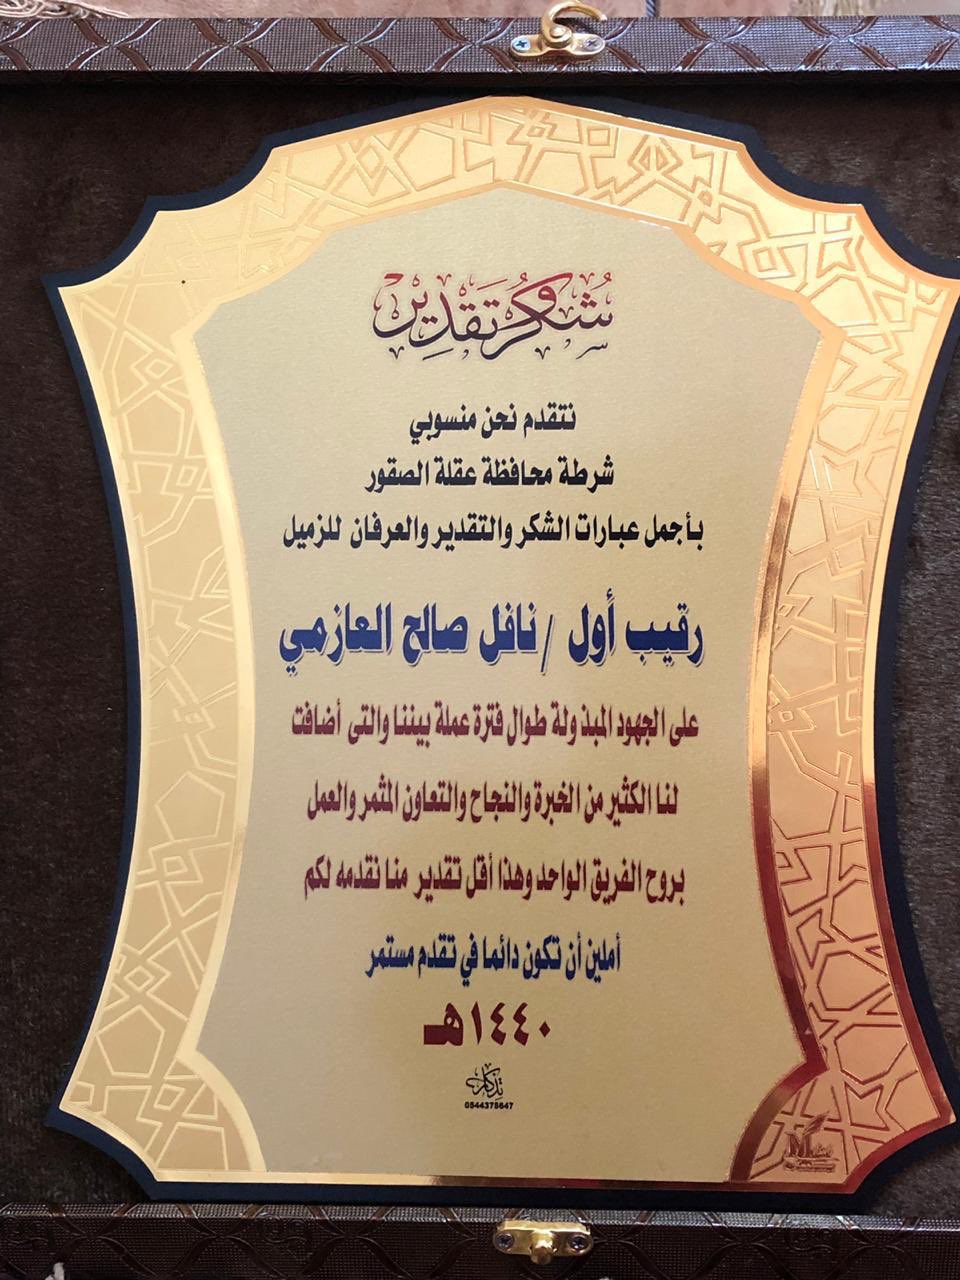 شكر وتقدير
نتقدم نحن منسوبي
شرطة محافظة عقلة الصقور
بأجمل عبارات الشكر والتقدير والعرفان للزميل
رقيب أول / نافل صالح العازمي
على الجهود المبذولة طوال فترة عملة بيننا والتى أضافت
لنا الكثير من الخبرة والنجاح والتعاون المثمر والعمل
بروح الفريق الواحد وهذا أقل تقدير منا نقدمه لكم
أملين أن تكون دائما في تقدم مستمر
١٤٤٠هـ
تذكار
0544378647